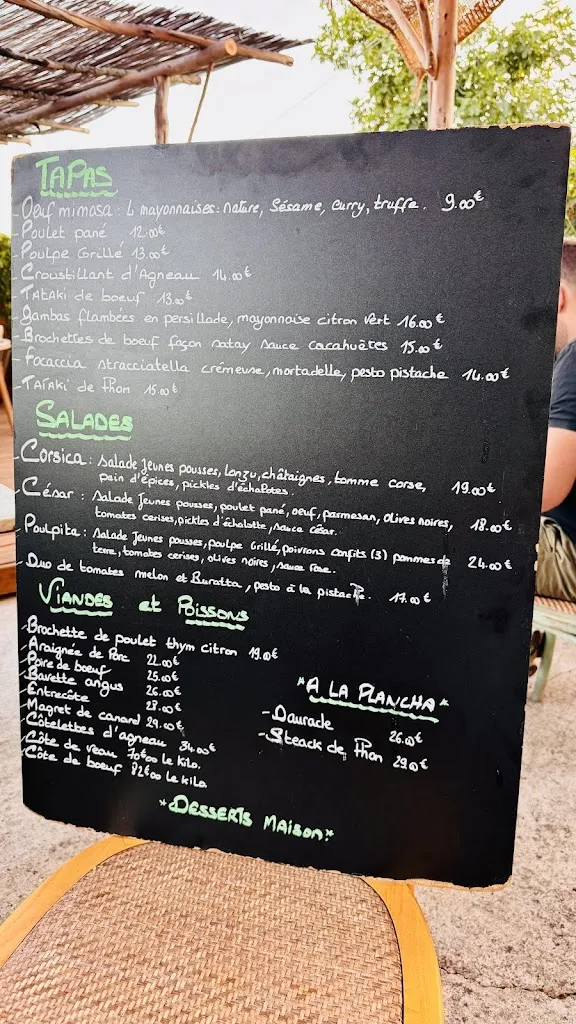 TAPAS
- Oeuf mimosa : 4 mayonnaises : nature, Sésame, curry, truffe. 9.00€
- Poulet pané 12.00€
- Poulpe Grillé 13.00€
- Croustillant d'Agneau 14.00€
- Tataki de boeuf 13.00€
- Gambas flambées en persillade, mayonnaise citron vert 16.00€
- Brochettes de boeuf façon satay sauce cacahuètes 15.00€
- Focaccia stracciatella crémeuse, mortadelle, pesto pistache 14.00€
- Tataki de Thon 15.00€
SALADES
- Corsica : Salade Jeunes pousses, lonzu, châtaignes, tomme corse, 19.00€
pain d'épices, pickles d'échalotes.
- César : Salade Jeunes pousses, poulet pané, oeuf, parmesan, olives noires, 18.00€
tomates cerises, pickles d'échalotte, sauce césar.
- Poulpita : Salade Jeunes pousses, poulpe Grillé, poivrons confits (3) pommes de 24.00€
terre, tomates cerises, olives noires, sauce rose.
- Duo de tomates melon et Buratta, pesto à la pistache. 17.00€
VIANDES et POISSONS
- Brochette de poulet thym citron 19.00€
- Araignée de Porc 22.00€
- Poire de boeuf 25.00€
- Bavette angus 26.00€
- Entrecôte 28.00€
- Magret de canard 29.00€
- Côtelettes d'agneau 34.00€
- Côte de veau 70€00 le kilo.
- Côte de boeuf 82€00 le kilo
*A LA PLANCHA*
- Daurade 26.00€
- Steack de Thon 29.00€
*DESSERTS MAISON*